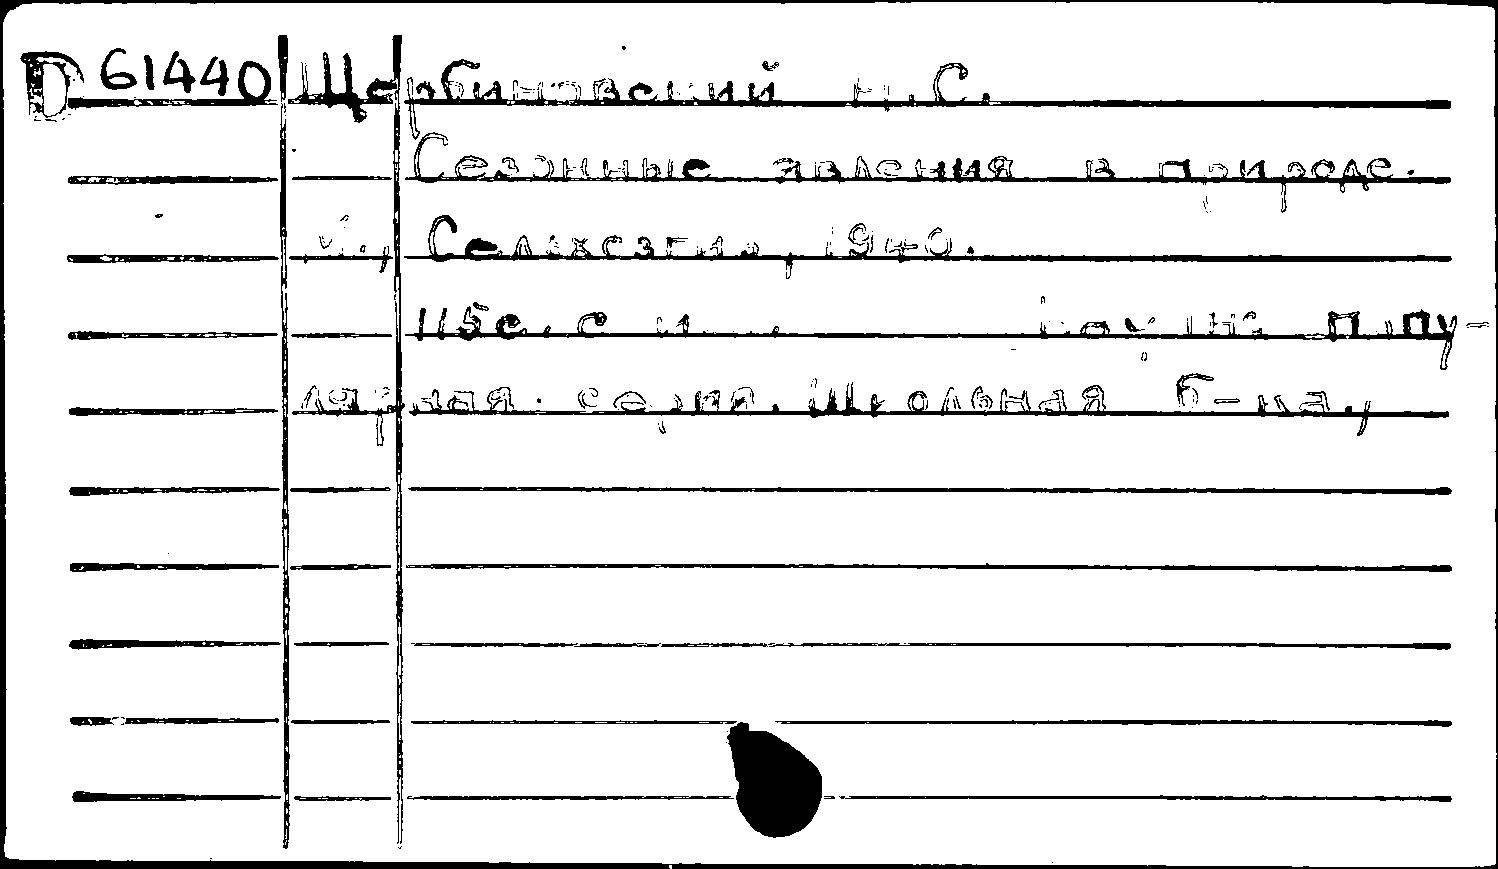 D 61440 Щербиновский Н.С.
Сезонные явления в природе.
М., Сельхозгиз, 1940.
115с. с ил. Научно-попу-
лярная серия. Школьная б-ка.,